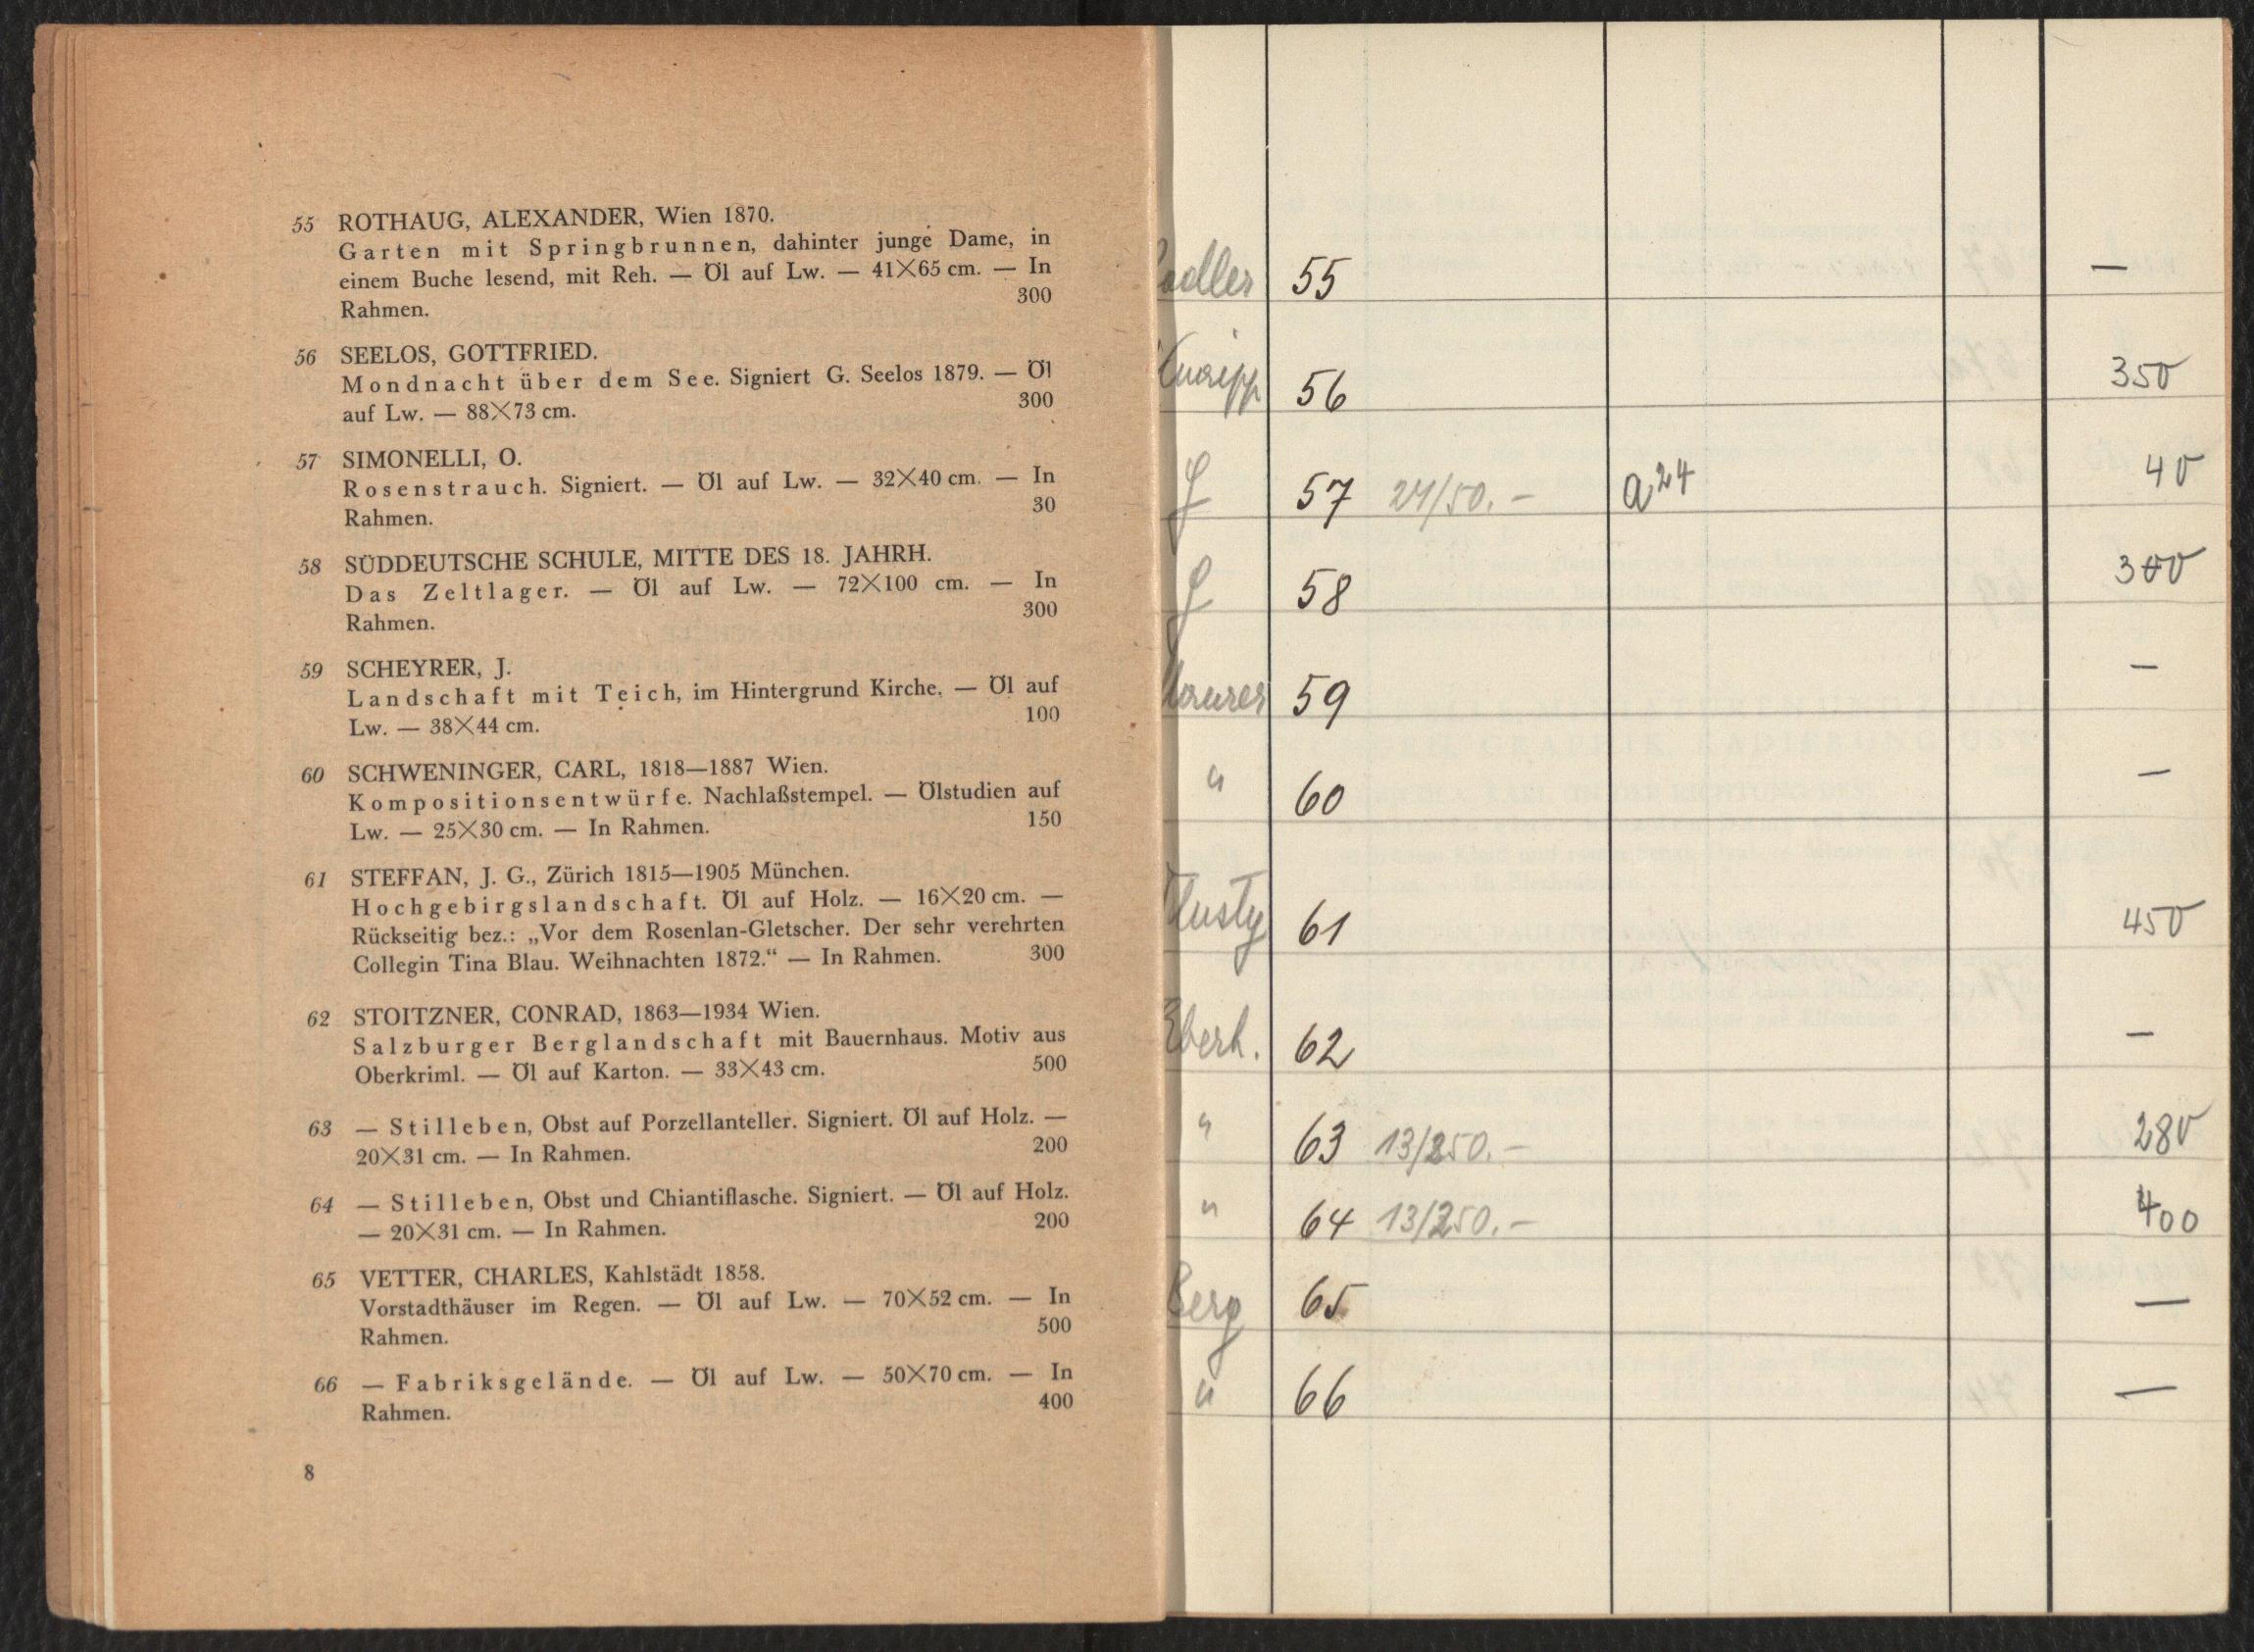 55 ROTHAUG, ALEXANDER, Wien 1870.
Garten mit Springbrunnen, dahinter junge Dame, in
einem Buche lesend, mit Reh. — Öl auf Lw. — 41×65 cm. — In
Rahmen. 300
56 SEELOS, GOTTFRIED.
Mondnacht über dem See. Signiert G. Seelos 1879. — Öl
auf Lw. — 88×73 cm. 300
57 SIMONELLI, O.
Rosenstrauch. Signiert. — Öl auf Lw. — 32×40 cm. — In
Rahmen. 30
58 SÜDDEUTSCHE SCHULE, MITTE DES 18. JAHRH.
Das Zeltlager. — Öl auf Lw. — 72×100 cm. — In
Rahmen. 300
59 SCHEYRER, J.
Landschaft mit Teich, im Hintergrund Kirche. — Öl auf
Lw. — 38×44 cm. 100
60 SCHWENINGER, CARL, 1818—1887 Wien.
Kompositionsentwürfe. Nachlaßstempel. — Ölstudien auf
Lw. — 25×30 cm. — In Rahmen. 150
61 STEFFAN, J. G., Zürich 1815—1905 München.
Hochgebirgslandschaft. Öl auf Holz. — 16×20 cm. —
Rückseitig bez.: „Vor dem Rosenlan-Gletscher. Der sehr verehrten
Collegin Tina Blau. Weihnachten 1872.“ — In Rahmen. 300
62 STOITZNER, CONRAD, 1863—1934 Wien.
Salzburger Berglandschaft mit Bauernhaus. Motiv aus
Oberkriml. — Öl auf Karton. — 33×43 cm. 500
63 — Stilleben, Obst auf Porzellanteller. Signiert. Öl auf Holz. —
20×31 cm. — In Rahmen. 200
64 — Stilleben, Obst und Chiantiflasche. Signiert. — Öl auf Holz.
— 20×31 cm. — In Rahmen. 200
65 VETTER, CHARLES, Kahlstädt 1858.
Vorstadthäuser im Regen. — Öl auf Lw. — 70×52 cm. — In
Rahmen. 500
66 — Fabriksgelände. — Öl auf Lw. — 50×70 cm. — In
Rahmen. 400
8
55 —
56 350
57 24/50.- a24 40
58 300
59 —
60 —
61 450
62 —
" 63 13/250.- 280
" 64 13/250.- 400
Berg 65 —
" 66 —